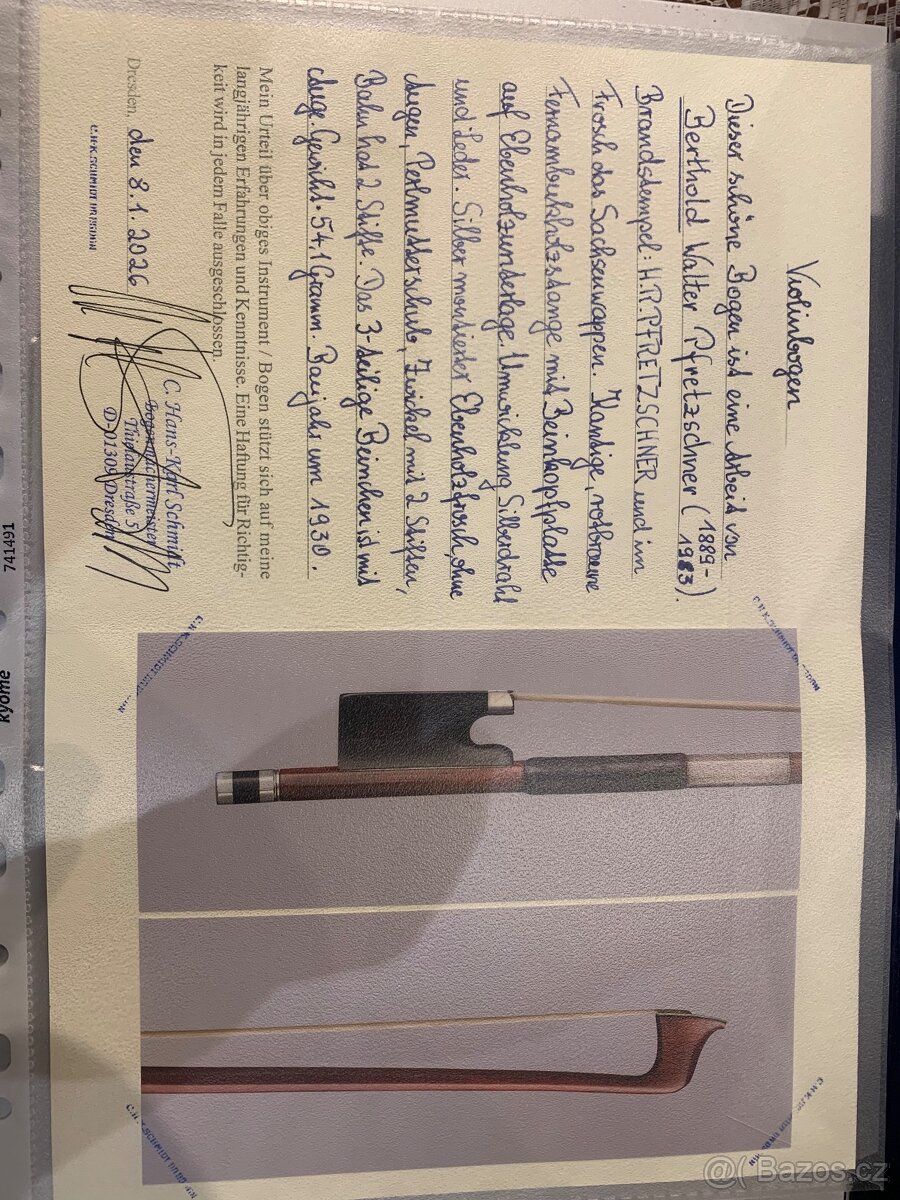 Violinbogen
Dieser schöne Bogen ist eine Arbeit von
Berthold Walter Pfretzschner (1889-
1983).
Brandstempel: H.R.PFRETZSCHNER und im
Frosch das Sachsenwappen. Kantige, rotbraune
Fernambukholzstange mit Beinkopfplatte
auf Ebenholzunterlage. Umwicklung Silberdraht
und Leder. Silber montierter Ebenholzfrosch, ohne
Augen, Perlmutterschub, Zwickel mit 2 Stiften,
Bahn hat 2 Stifte. Das 3-teilige Beinchen ist mit
Auge. Gewicht. 54,1 Gramm. Baujahr um 1930.
Mein Urteil über obiges Instrument / Bogen stützt sich auf meine
langjährigen Erfahrungen und Kenntnisse. Eine Haftung für Richtig-
keit wird in jedem Falle ausgeschlossen.
Dresden, den 8.1.2026
C.H.K.SCHMIDT DRESDEN
C. Hans-Karl Schmidt
Bogenmachermeister
Thielaustraße 5
D-01309 Dresden
C.H.K.SCHMIDT DRESDEN
C.H.K.SCHMIDT DRESDEN
C.H.K.SCHMIDT DRESDEN
C.H.K.SCHMIDT DRESDEN
741491
kyome
Bazos.cz